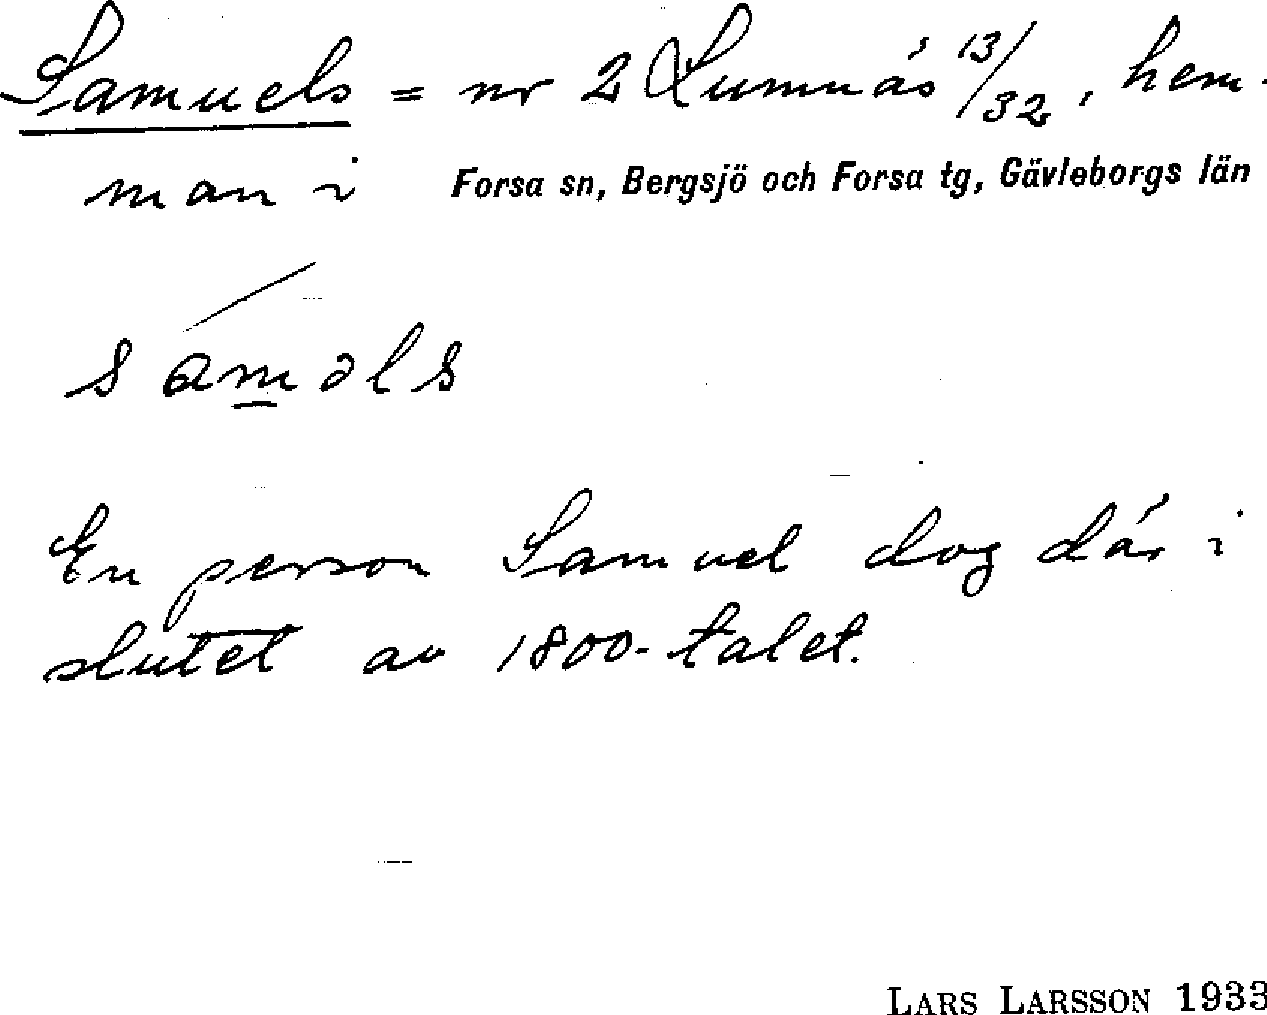 Samuels = nr 2 Lumnäs 13/32, hem-
man i Forsa sn, Bergsjö och Forsa tg, Gävleborgs län
sámәls
En person Samuel dog där i
slutet av 1800-talet.
LARS LARSSON 1933